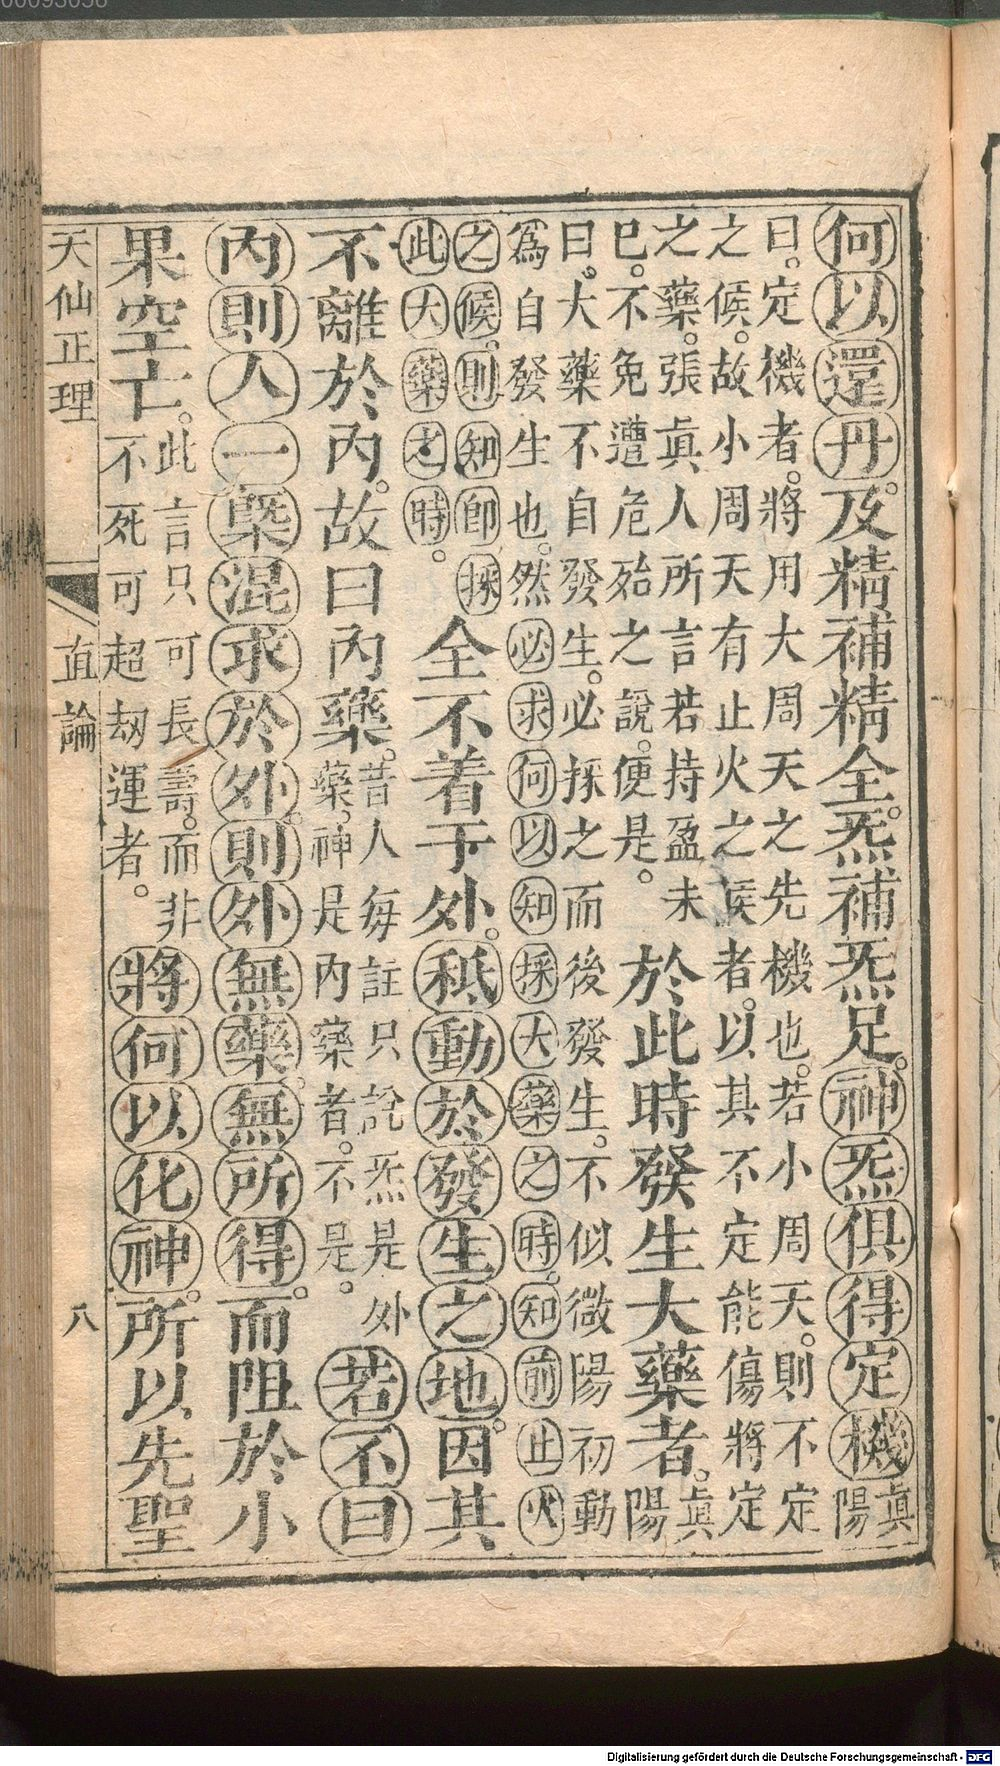 何以還丹。及精補精全。炁補炁足。神炁俱得定機眞
陽
曰。定機者。將用大周天之先機也。若小周天。則不定
之候。故小周天有止火之候者。以其不定能傷將定
之藥。張眞人所言若持盈未
巳。不免遭危殆之說。便是。
於此時發生大藥者。眞
陽
曰。大藥不自發生。必採之而後發生。不似微陽初動
爲自發生也。然必求何以知採大藥之時。知前止火
之候。則知卽採
此大藥之時。
全不着于外。秪動於發生之地。因其
不離於內。故曰內藥。
昔人每註只說炁是外
藥。神是內藥者。不是。
若不曰
內則人一槩混求於外。則外無藥。無所得。而阻於小
果空亡。
此言只可長壽。而非
不死可超劫運者。
將何以化神。所以先聖
天仙正理 直論 八
Digitalisierung gefördert durch die Deutsche Forschungsgemeinschaft - DFG